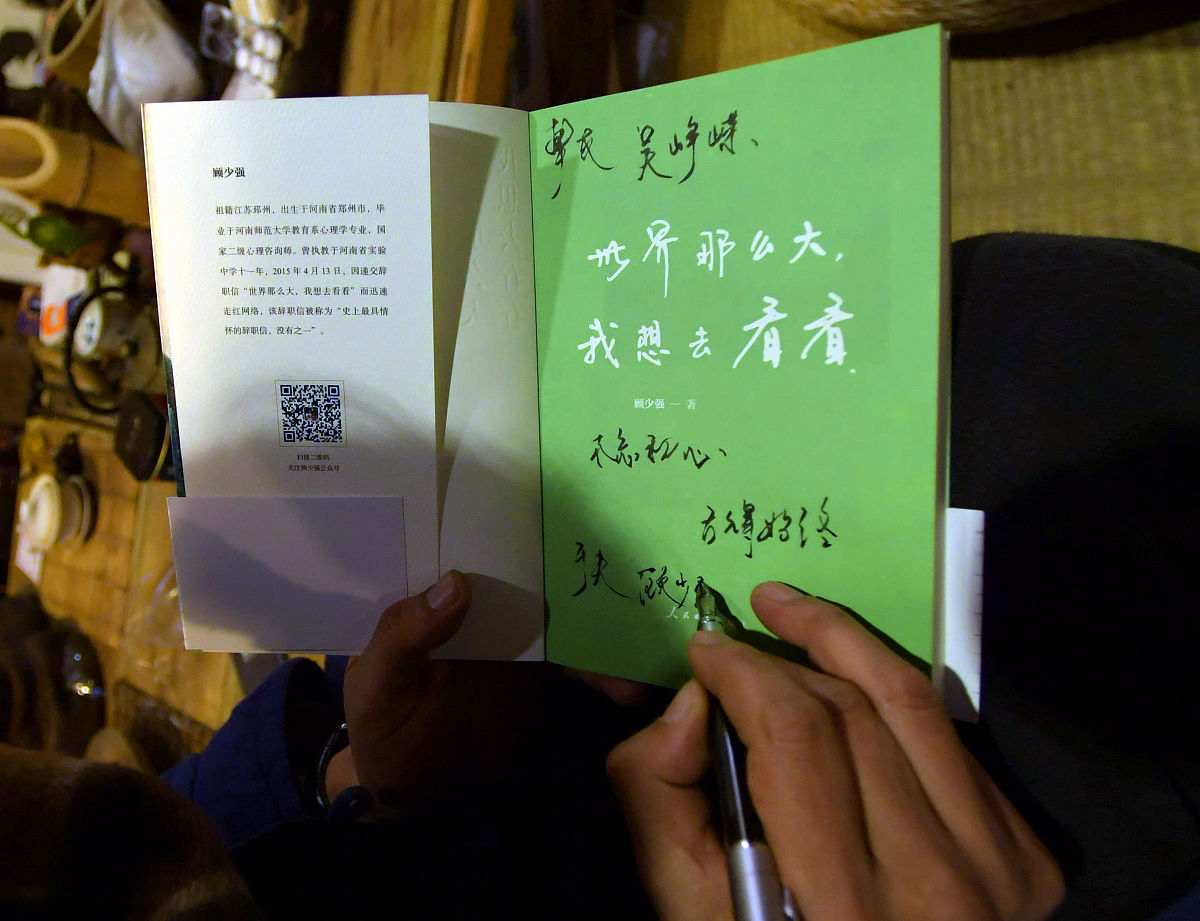 顾少强
祖籍江苏邳州，出生于河南省郑州市，毕
业于河南师范大学教育系心理学专业，国
家二级心理咨询师。曾执教于河南省实验
中学十一年，2015 年 4 月 13 日，因递交辞
职信“世界那么大，我想去看看”而迅速
走红网络，该辞职信被称为“史上最具情
怀的辞职信，没有之一”。
扫描二维码
关注顾少强公众号
吴峥嵘、
世界那么大，
我想去看看.
顾少强 — 著
不忘初心、
方得始终
顾少
人民